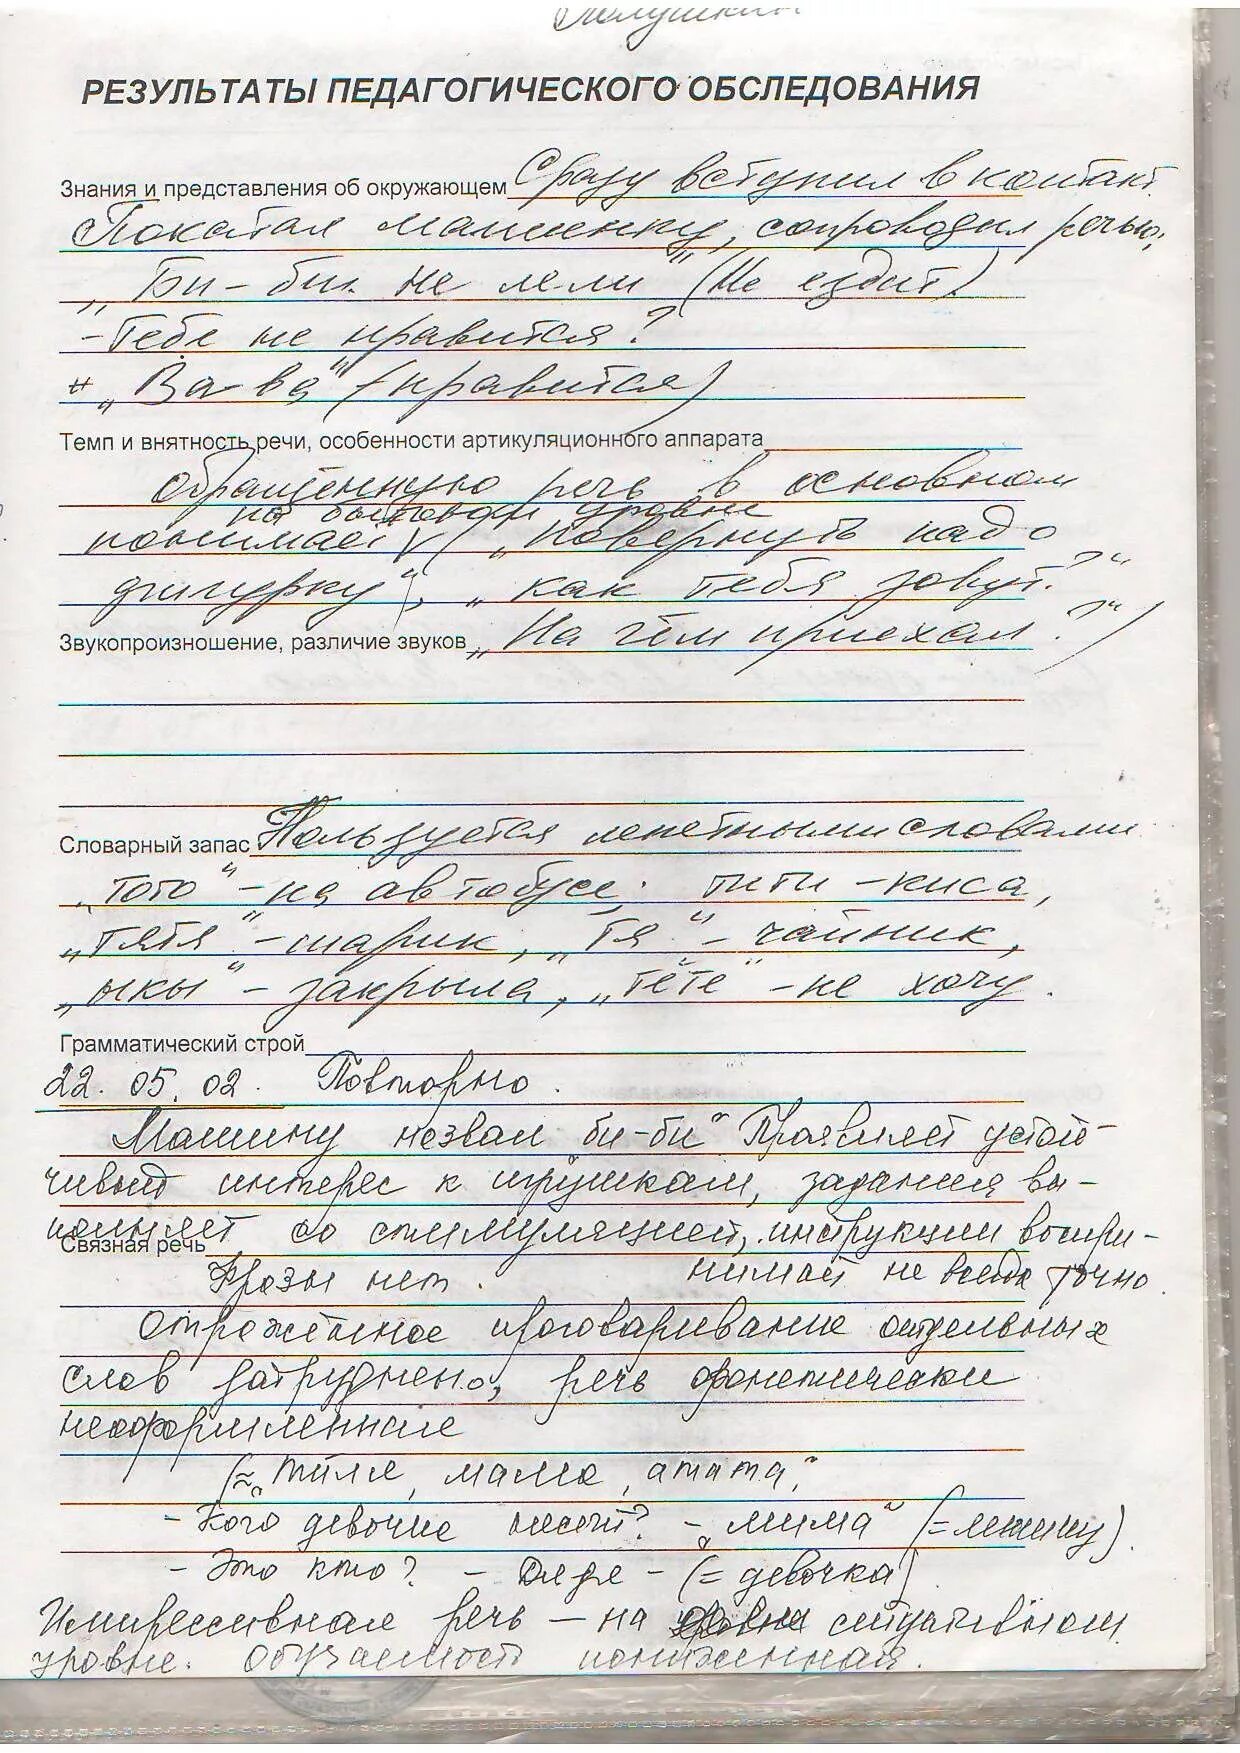 РЕЗУЛЬТАТЫ ПЕДАГОГИЧЕСКОГО ОБСЛЕДОВАНИЯ
Знания и представления об окружающем Сразу вступил в контакт.
Покатал машинку, сопроводил речью:
„Би-би. не ле-ли" (Не ездит)
- Тебе не нравится?
„Ва-ва" (нравится)
Темп и внятность речи, особенности артикуляционного аппарата
обращённую речь в основном
на бытовом уровне
понимает ∨ („Повернуть надо
фигурку", „как тебя зовут?"
Звукопроизношение, различие звуков „На чём приехал?")
Словарный запас Пользуется лепетными словами
„тото" - на автобусе; тити - киса,
„тятя" - шарик, „тя" - чайник,
„ыкы" - закрыла, „тёте" - не хочу.
Грамматический строй
22.05.02. Повторно.
Машину назвал би-би" Проявляет устой-
чивый интерес к игрушкам, задания вы-
полняет со стимуляцией, инструкции воспри-
Связная речь
Фразы нет. нимает не всегда точно.
Отражённое проговаривание отдельных
слов затруднено, речь фонетически
неоформленная
мама,
- Кого девочке несёт? - „мима" (= мишку).
- Это кто? - дядя - (= девочка)
Импрессивная речь – на ситуативном
уровне. Обучаемость пониженная.